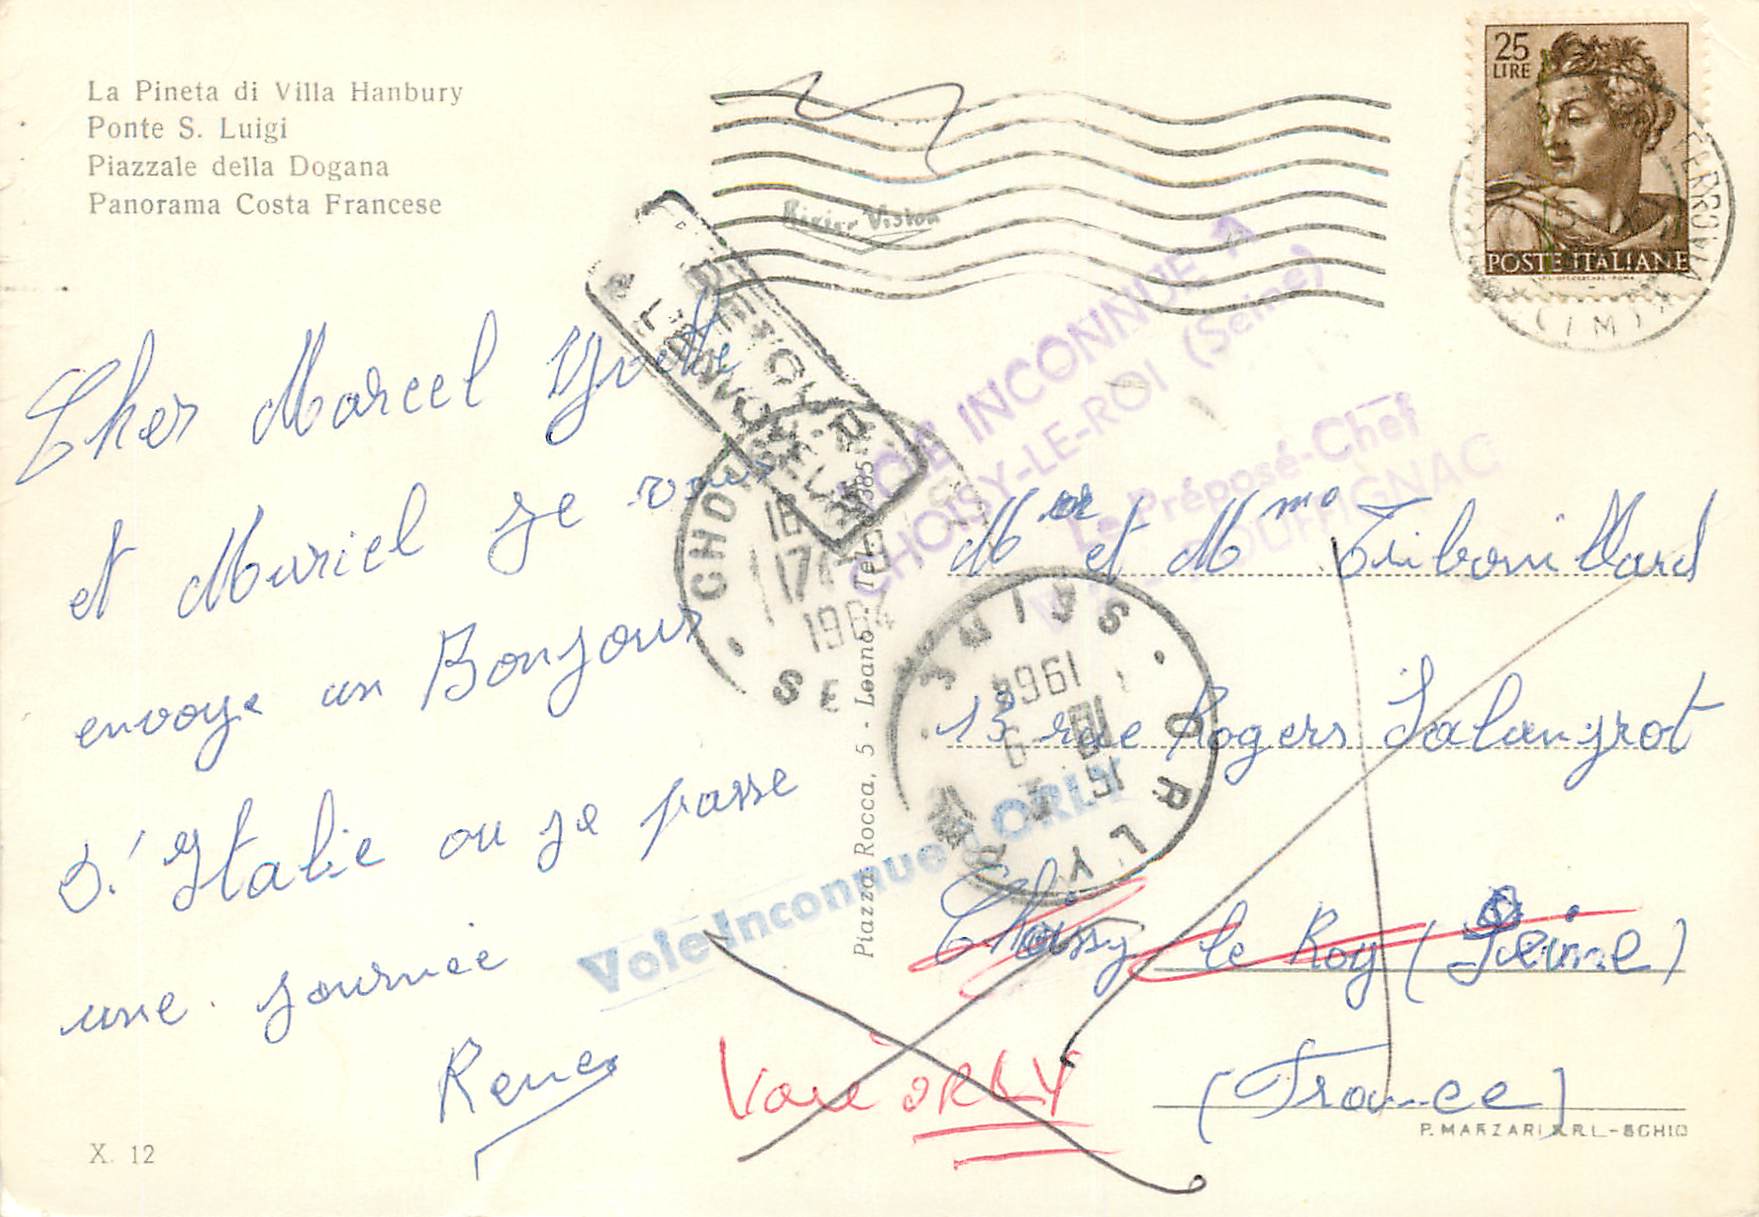 La Pineta di Villa Hanbury
Ponte S. Luigi
Piazzale della Dogana
Panorama Costa Francese
25
LIRE
POSTE ITALIANE
RETOUR
A L'ENVOYEUR
VOIE INCONNUE A
CHOISY-LE-ROI (Seine)
Le Préposé-Chef
CHOISY
18
17
1964
SEINE
ORLY
SEINE
1964
Voie Inconnue à ORLY
Cher Marcel Yvette
et Muriel je vous
envoye un Bonjour
d'Italie ou je passe
une journée
Rene
Mr et Mme Tribouillard
13 rue Rogers Salangrot
Choissy le Roy (Seine)
(France)
Voir ORLY
Piazza Rocca, 5 - Loano - Tel.
X. 12
P. MARZARI S.R.L-SCHIO